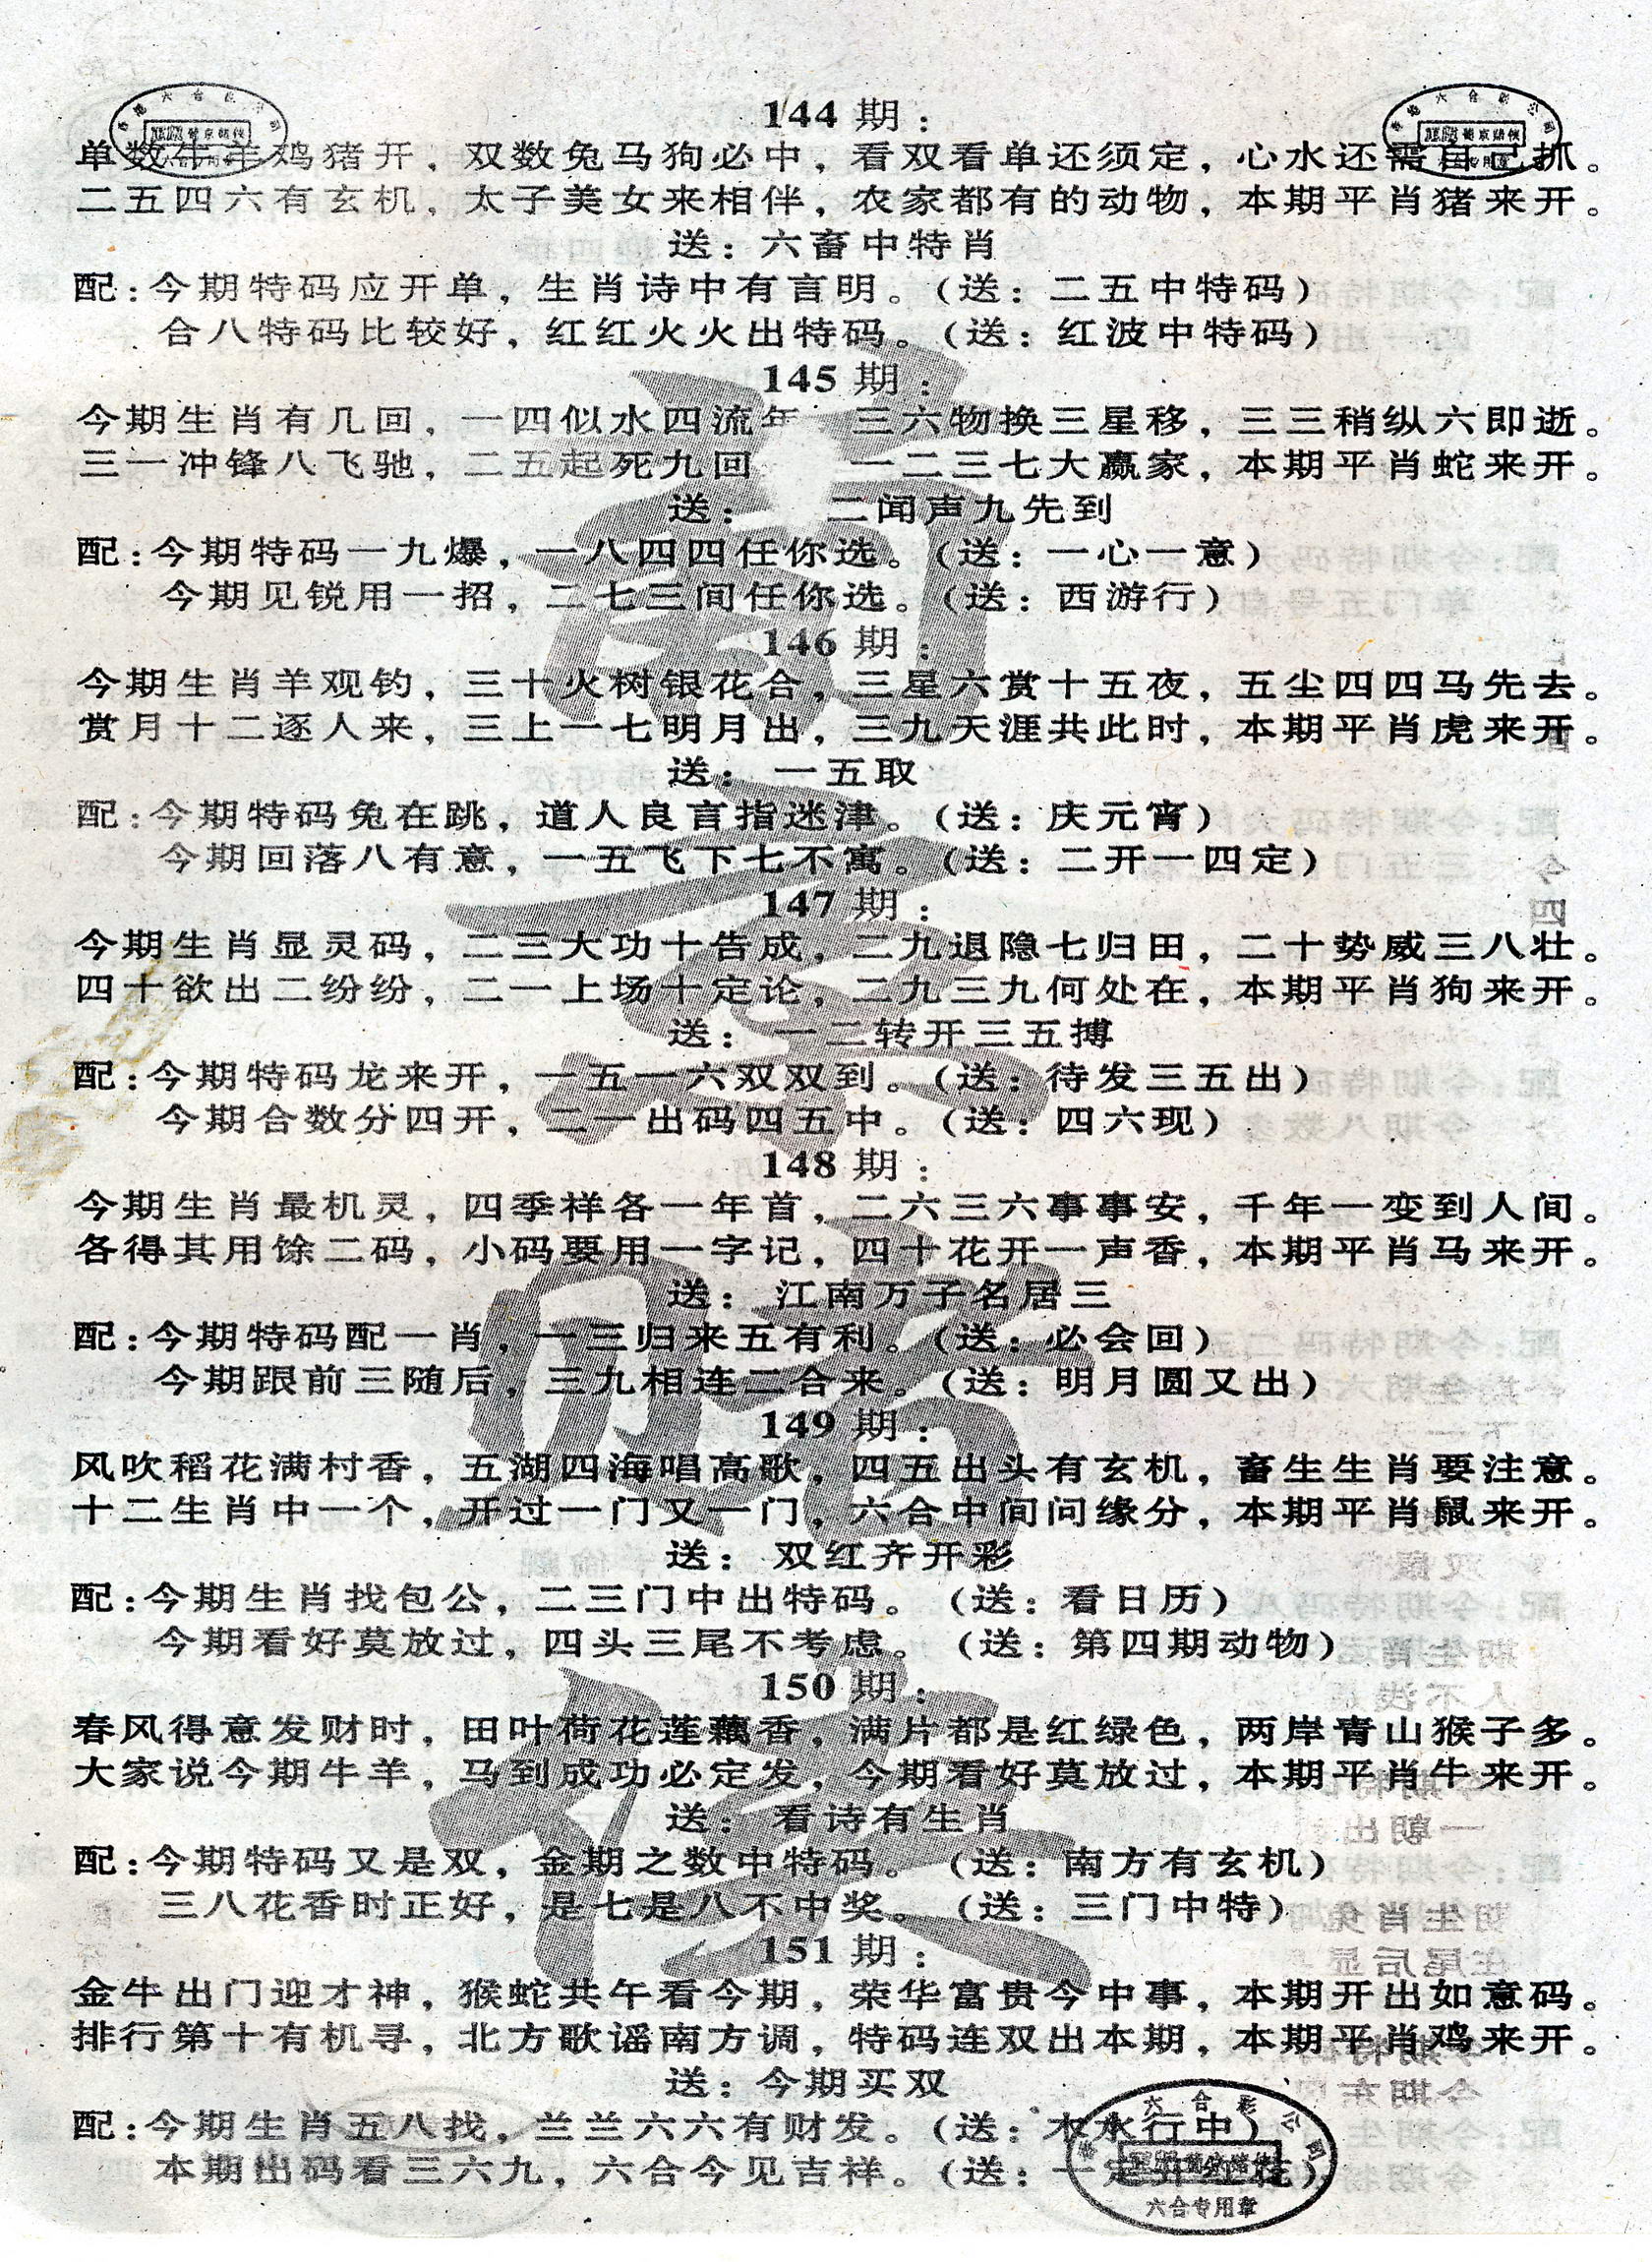 144期：
单数牛羊鸡猪开，双数兔马狗必中，看双看单还须定，心水还需自己抓。
二五四六有玄机，太子美女来相伴，农家都有的动物，本期平肖猪来开。
送：六畜中特肖
配：今期特码应开单，生肖诗中有言明。（送：二五中特码）
合八特码比较好，红红火火出特码。（送：红波中特码）
145期：
今期生肖有几回，一四似水四流年 三六物换三星移，三三稍纵六即逝。
三一冲锋八飞驰，二五起死九回 一二三七大赢家，本期平肖蛇来开。
送： 二闻声九先到
配：今期特码一九爆，一八四四任你选。（送：一心一意）
今期见锐用一招，二七三间任你选。（送：西游行）
146期：
今期生肖羊观钓，三十火树银花合，三星六赏十五夜，五尘四四马先去。
赏月十二逐人来，三上一七明月出，三九天涯共此时，本期平肖虎来开。
送：一五取
配：今期特码兔在跳，道人良言指迷津。（送：庆元宵）
今期回落八有意，一五飞下七不寓。（送：二开一四定）
147期：
今期生肖显灵码，二三大功十告成，二九退隐七归田，二十势威三八壮。
四十欲出二纷纷，二一上场十定论，二九三九何处在，本期平肖狗来开。
送：一二转开三五搏
配：今期特码龙来开，一五一六双双到。（送：待发三五出）
今期合数分四开，二一出码四五中。（送：四六现）
148期：
今期生肖最机灵，四季祥各一年首，二六三六事事安，千年一变到人间。
各得其用馀二码，小码要用一字记，四十花开一声香，本期平肖马来开。
送：江南万子名居三
配：今期特码配一肖，一三归来五有利。（送：必会回）
今期跟前三随后，三九相连二合来。（送：明月圆又出）
149期：
风吹稻花满村香，五湖四海唱高歌，四五出头有玄机，畜生生肖要注意。
十二生肖中一个，开过一门又一门，六合中间问缘分，本期平肖鼠来开。
送：双红齐开彩
配：今期生肖找包公，二三门中出特码。（送：看日历）
今期看好莫放过，四头三尾不考虑。（送：第四期动物）
150期：
春风得意发财时，田叶荷花莲藕香，满片都是红绿色，两岸青山猴子多。
大家说今期牛羊，马到成功必定发，今期看好莫放过，本期平肖牛来开。
送：看诗有生肖
配：今期特码又是双，金期之数中特码。（送：南方有玄机）
三八花香时正好，是七是八不中奖。（送：三门中特）
151期：
金牛出门迎才神，猴蛇共午看今期，荣华富贵今中事，本期开出如意码。
排行第十有机寻，北方歌谣南方调，特码连双出本期，本期平肖鸡来开。
送：今期买双
配：今期生肖五八找，兰兰六六有财发。（送：木水行中）
本期出码看三六九，六合今见吉祥。（送：一定开红花）
六合专用章